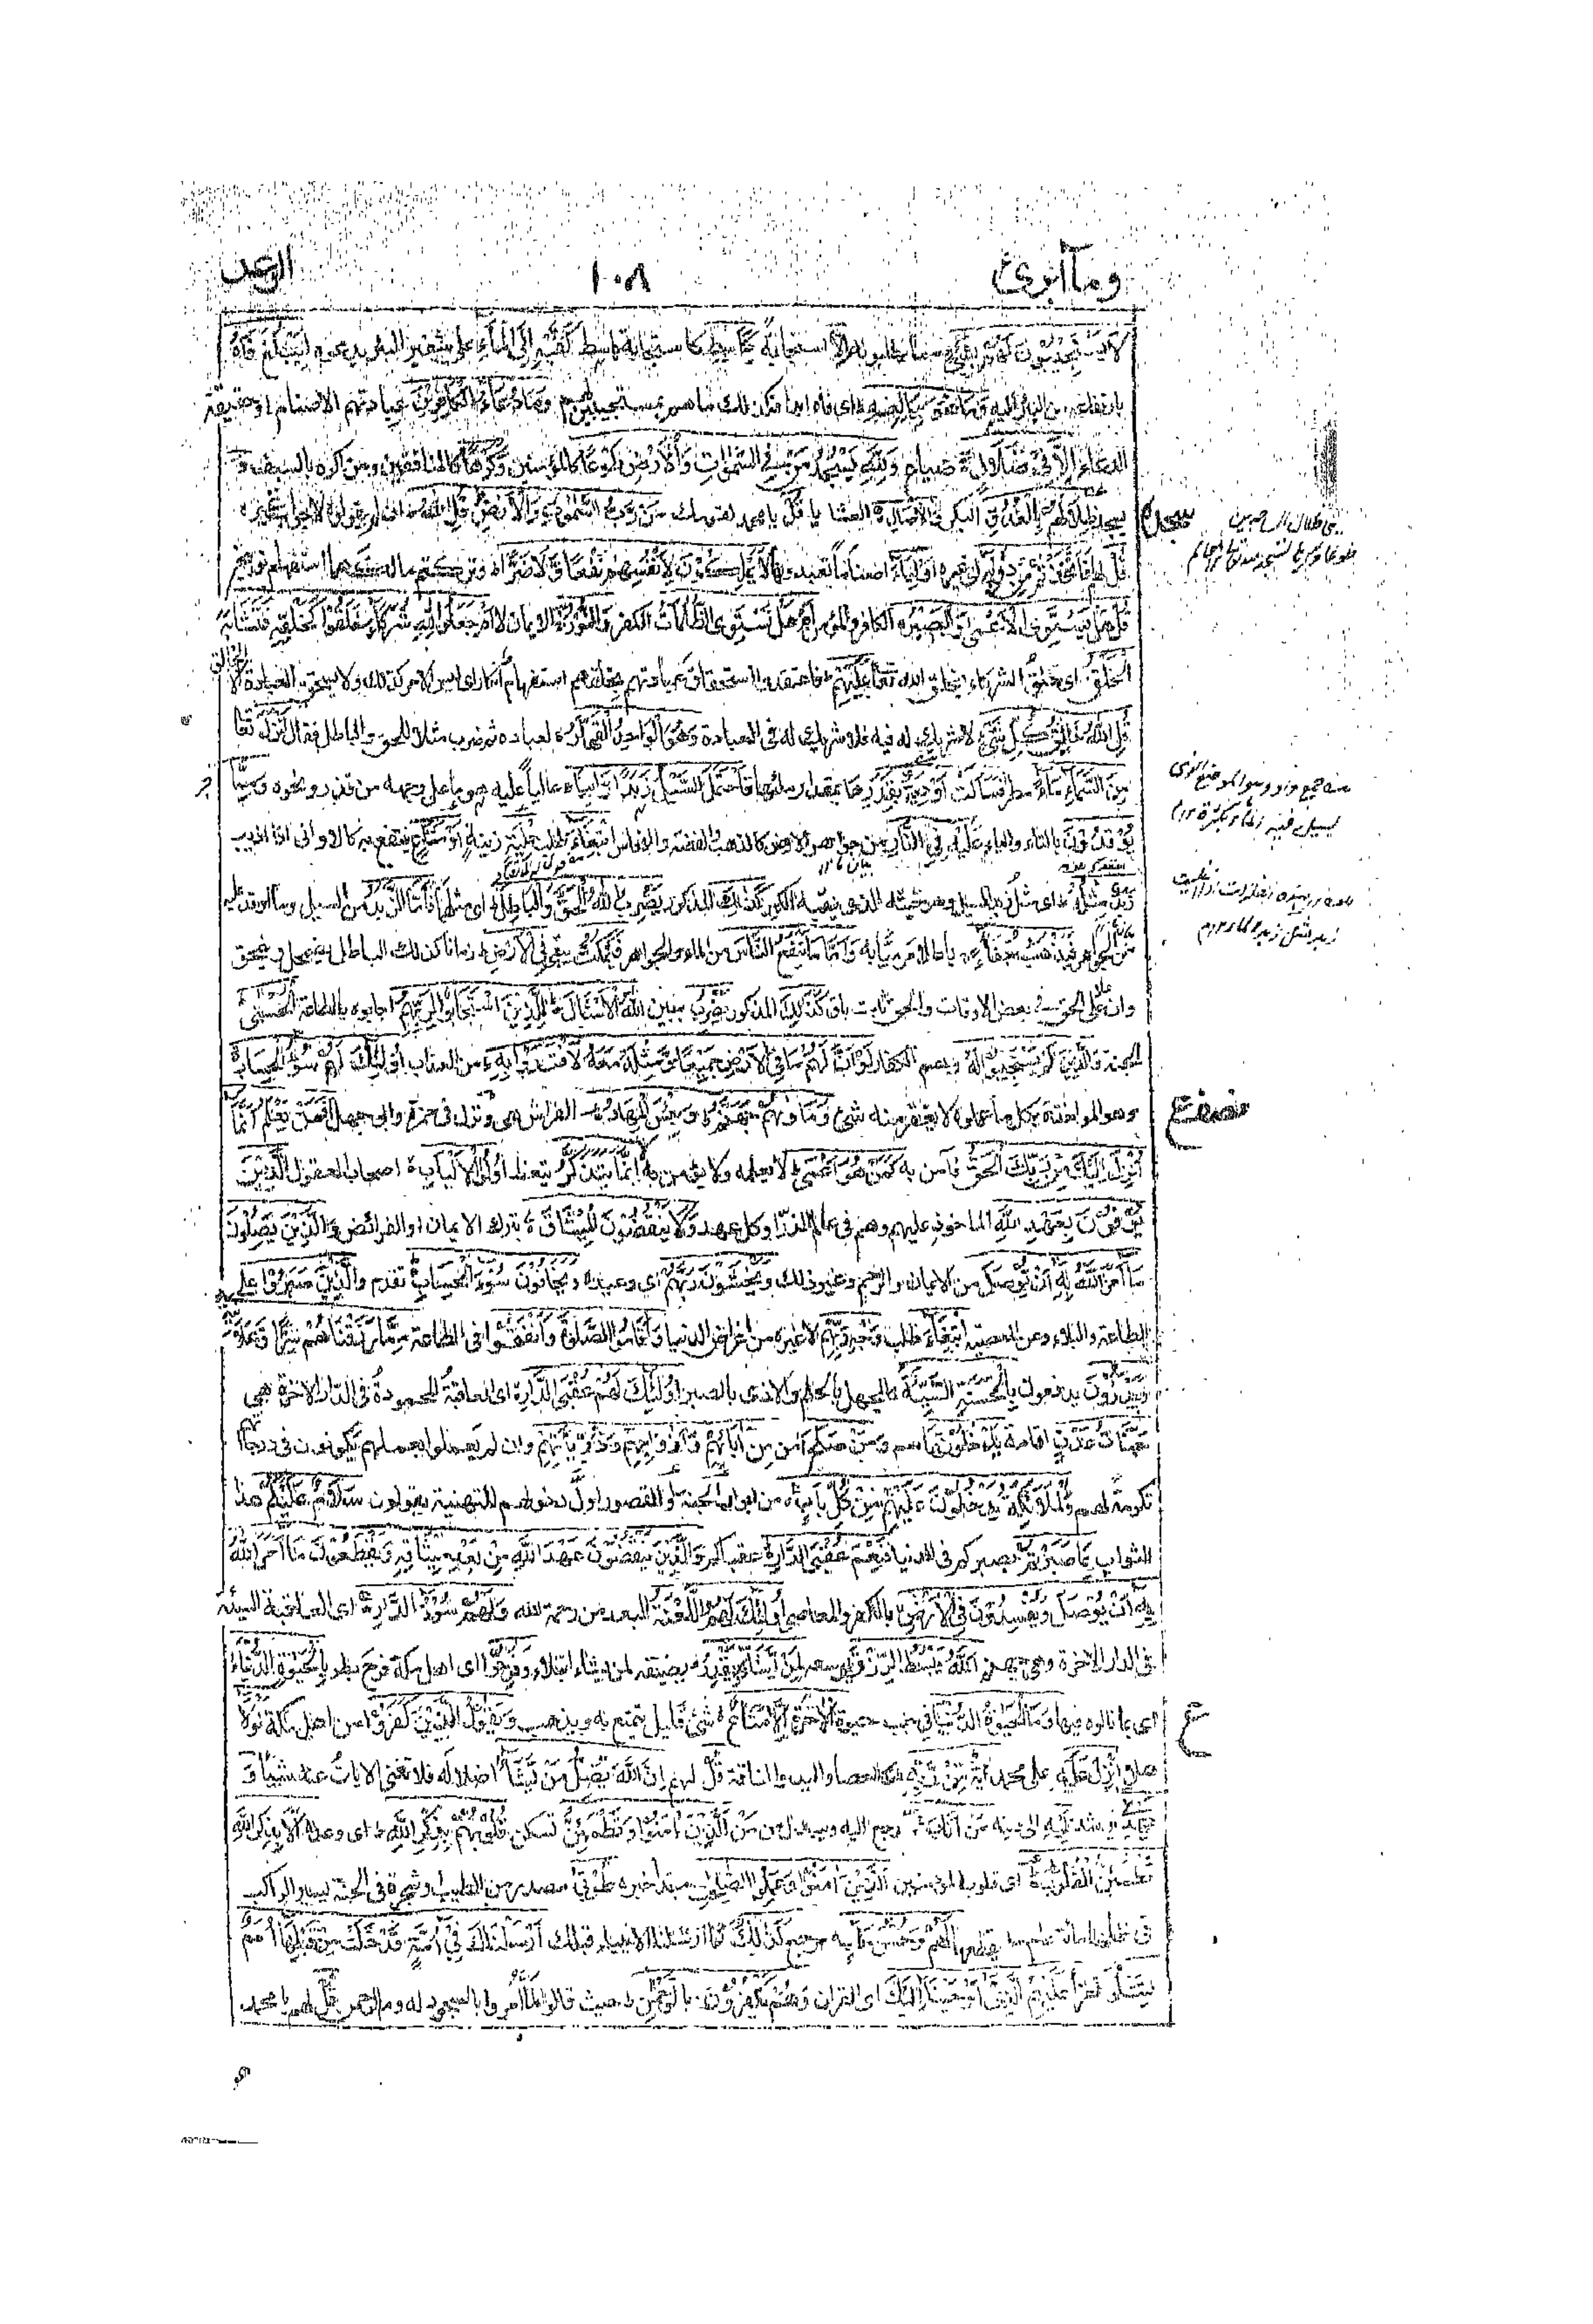 وما أبرئ ١٠٨ الرعد
لَا يَسْتَجِيْبُوْنَ لَهُمْ بِشَيْءٍ مما يطلبونه اِلَّا استجابةً كَبَاسِطِ كاستجابة باسط كَفَّيْهِ اِلَى الْمَآءِ على شفير البئر يدعوه لِيَبْلُغَ فَاهُ
بارتفاعه من البئر اليه وَمَا هُوَ بِبَالِغِهٖ ای فاه ابدا فكذلك ما هم بمستجيبين لهم وَمَا دُعَآءُ الْكَافِرِيْنَ عبادتهم الاصنام او حقيقة
الدعاء اِلَّا فِيْ ضَلَالٍ ضياع وَلِلّٰهِ يَسْجُدُ مَنْ فِي السَّمٰوٰتِ وَالْاَرْضِ طَوْعًا كالمؤمنين وَّكَرْهًا كالمنافقين ومن اكره بالسيف وَّ
يسجد ظِلَالُهُمْ بِالْغُدُوِّ البكر وَالْاٰصَالِ العشايا قُلْ يا محمد لقومك مَنْ رَّبُّ السَّمٰوٰتِ وَالْاَرْضِ قُلِ اللّٰهُ ان لم يقولوه لا جواب غيره
قُلْ لهم اَفَاتَّخَذْتُمْ مِّنْ دُوْنِهٖ ای غيره اَوْلِيَآءَ اصناما تعبدونها لَا يَمْلِكُوْنَ لِاَنْفُسِهِمْ نَفْعًا وَّلَا ضَرًّا وتركتم مالكهما استفهام توبيخ
قُلْ هَلْ يَسْتَوِى الْاَعْمٰى وَالْبَصِيْرُ الكافر والمؤمن اَمْ هَلْ تَسْتَوِى الظُّلُمَاتُ الكفر وَالنُّوْرُ الايمان لا اَمْ جَعَلُوْا لِلّٰهِ شُرَكَآءَ خَلَقُوْا كَخَلْقِهٖ فَتَشَابَهَ
الْخَلْقُ ای خلق الشركاء بخلق الله تعا عَلَيْهِمْ فاعتقدوا استحقاق عبادتهم بخلقهم استفهام انكار ای ليس الامر كذلك ولا يستحق العبادة الا الخالق
قُلِ اللّٰهُ خَالِقُ كُلِّ شَيْءٍ لا شريك له فيه فلا شريك له فى العبادة وَهُوَ الْوَاحِدُ الْقَهَّارُ لعباده ثم ضرب مثلا للحق والباطل فقال اَنْزَلَ تعا
مِنَ السَّمَآءِ مَآءً مطرا فَسَالَتْ اَوْدِيَةٌ بِقَدَرِهَا بمقدار ملئها فَاحْتَمَلَ السَّيْلُ زَبَدًا رَّابِيًا عاليا عليه هو ما على وجهه من قذر ونحوه وَمِمَّا
يُوْقِدُوْنَ بالتاء والياء عَلَيْهِ فِي النَّارِ من جواهر الارض كالذهب والفضة والنحاس ابْتِغَآءَ طلب حِلْيَةٍ زينة اَوْ مَتَاعٍ ينتفع به كالاوانى اذا اذيبت
زَبَدٌ مِّثْلُهٗ ای مثل زبد السيل وهو خبثه الذى ينفيه الكير كَذٰلِكَ المذكور يَضْرِبُ اللّٰهُ الْحَقَّ وَالْبَاطِلَ ای مثلهما فَاَمَّا الزَّبَدُ من السيل وما اوقد عليه
من الجواهر فَيَذْهَبُ جُفَآءً باطلا مرميا به وَاَمَّا مَا يَنْفَعُ النَّاسَ من الماء والجواهر فَيَمْكُثُ يبقى فِي الْاَرْضِ زمانا كذلك الباطل يضمحل وينمحق
وان علا على الحق فى بعض الاوقات والحق ثابت باق كَذٰلِكَ المذكور يَضْرِبُ يبين اللّٰهُ الْاَمْثَالَ لِلَّذِيْنَ اسْتَجَابُوْا لِرَبِّهِمُ اجابوه بالطاعة الْحُسْنٰى
الجنة وَالَّذِيْنَ لَمْ يَسْتَجِيْبُوْا لَهٗ وهم الكفار لَوْ اَنَّ لَهُمْ مَّا فِي الْاَرْضِ جَمِيْعًا وَّمِثْلَهٗ مَعَهٗ لَافْتَدَوْا بِهٖ من العذاب اُولٰٓئِكَ لَهُمْ سُوْٓءُ الْحِسَابِ
وهو المواخذة بكل ما عملوه لا يغفر منه شئ وَمَاْوٰىهُمْ جَهَنَّمُ وَبِئْسَ الْمِهَادُ الفراش هى ونزل فى حمزة وابى جهل اَفَمَنْ يَّعْلَمُ اَنَّمَآ
اُنْزِلَ اِلَيْكَ مِنْ رَّبِّكَ الْحَقُّ فآمن به كَمَنْ هُوَ اَعْمٰى لا يعلمه ولا يؤمن به اِنَّمَا يَتَذَكَّرُ يتعظ اُولُوا الْاَلْبَابِ اصحاب العقول الَّذِيْنَ
يُوْفُوْنَ بِعَهْدِ اللّٰهِ الماخوذ عليهم وهم فى عالم الذر او كل عهد وَلَا يَنْقُضُوْنَ الْمِيْثَاقَ بترك الايمان او الفرائض وَالَّذِيْنَ يَصِلُوْنَ
مَآ اَمَرَ اللّٰهُ بِهٖٓ اَنْ يُّوْصَلَ من الايمان والرحم وغير ذلك وَيَخْشَوْنَ رَبَّهُمْ ای وعيده وَيَخَافُوْنَ سُوْٓءَ الْحِسَابِ تقدم وَالَّذِيْنَ صَبَرُوْا على
الطاعة والبلاء وعن المعصية ابْتِغَآءَ طلب وَجْهِ رَبِّهِمْ لا غيره من اغراض الدنيا وَاَقَامُوا الصَّلٰوةَ وَاَنْفَقُوْا فى الطاعة مِمَّا رَزَقْنَاهُمْ سِرًّا وَّعَلَانِيَةً
وَّيَدْرَءُوْنَ يدفعون بِالْحَسَنَةِ السَّيِّئَةَ كالجهل بالحلم والاذى بالصبر اُولٰٓئِكَ لَهُمْ عُقْبَى الدَّارِ ای العاقبة المحمودة فى الدار الآخرة هى
جَنّٰتُ عَدْنٍ اقامة يَّدْخُلُوْنَهَا هم وَمَنْ صَلَحَ آمن مِنْ اٰبَآئِهِمْ وَاَزْوَاجِهِمْ وَذُرِّيّٰتِهِمْ وان لم يعملوا بعملهم يكونون فى درجاتهم
تكرمة لهم وَالْمَلٰٓئِكَةُ يَدْخُلُوْنَ عَلَيْهِمْ مِّنْ كُلِّ بَابٍ من ابواب الجنة او القصور اول دخولهم للتهنية يقولون سَلَامٌ عَلَيْكُمْ هذا
الثواب بِمَا صَبَرْتُمْ بصبركم فى الدنيا فَنِعْمَ عُقْبَى الدَّارِ عقباكم وَالَّذِيْنَ يَنْقُضُوْنَ عَهْدَ اللّٰهِ مِنْ بَعْدِ مِيْثَاقِهٖ وَيَقْطَعُوْنَ مَآ اَمَرَ اللّٰهُ
بِهٖٓ اَنْ يُّوْصَلَ وَيُفْسِدُوْنَ فِي الْاَرْضِ بالكفر والمعاصى اُولٰٓئِكَ لَهُمُ اللَّعْنَةُ البعد من رحمة الله وَلَهُمْ سُوْٓءُ الدَّارِ ای العاقبة السيئة
فى الدار الآخرة وهى جهنم اَللّٰهُ يَبْسُطُ الرِّزْقَ يوسعه لِمَنْ يَّشَآءُ وَيَقْدِرُ يضيقه لمن يشاء ابتلاء وَفَرِحُوْا ای اهل مكة فرح بطر بِالْحَيٰوةِ الدُّنْيَا
ای بما نالوه فيها وَمَا الْحَيٰوةُ الدُّنْيَا فِي جنب حيوة الْاٰخِرَةِ اِلَّا مَتَاعٌ شئ قليل يتمتع به ويذهب وَيَقُوْلُ الَّذِيْنَ كَفَرُوْا من اهل مكة لَوْلَآ
هلا اُنْزِلَ عَلَيْهِ على محمد اٰيَةٌ مِّنْ رَّبِّهٖ كالعصا واليد والناقة قُلْ لهم اِنَّ اللّٰهَ يُضِلُّ مَنْ يَّشَآءُ اضلاله فلا تغنى الآيات عنه شيئا وَ
يَهْدِيْٓ يرشد اِلَيْهِ الى دينه مَنْ اَنَابَ رجع اليه ويبدل من مَن الَّذِيْنَ اٰمَنُوْا وَتَطْمَئِنُّ تسكن قُلُوْبُهُمْ بِذِكْرِ اللّٰهِ ای وعده اَلَا بِذِكْرِ اللّٰهِ
تَطْمَئِنُّ الْقُلُوْبُ ای قلوب المؤمنين اَلَّذِيْنَ اٰمَنُوْا وَعَمِلُوا الصّٰلِحٰتِ مبتدأ خبره طُوْبٰى مصدر من الطيب او شجرة فى الجنة يسير الراكب
فى ظلها مائة عام ما يقطعها لَهُمْ وَحُسْنُ مَاٰبٍ مرجع كَذٰلِكَ كما ارسلنا الانبياء قبلك اَرْسَلْنَاكَ فِيْٓ اُمَّةٍ قَدْ خَلَتْ مِنْ قَبْلِهَآ اُمَمٌ
لِّتَتْلُوَا تقرأ عَلَيْهِمُ الَّذِيْٓ اَوْحَيْنَآ اِلَيْكَ ای القرآن وَهُمْ يَكْفُرُوْنَ بِالرَّحْمٰنِ حيث قالوا لما امروا بالسجود له وما الرحمن قُلْ لهم يا محمد
السجدة
نصف
ع